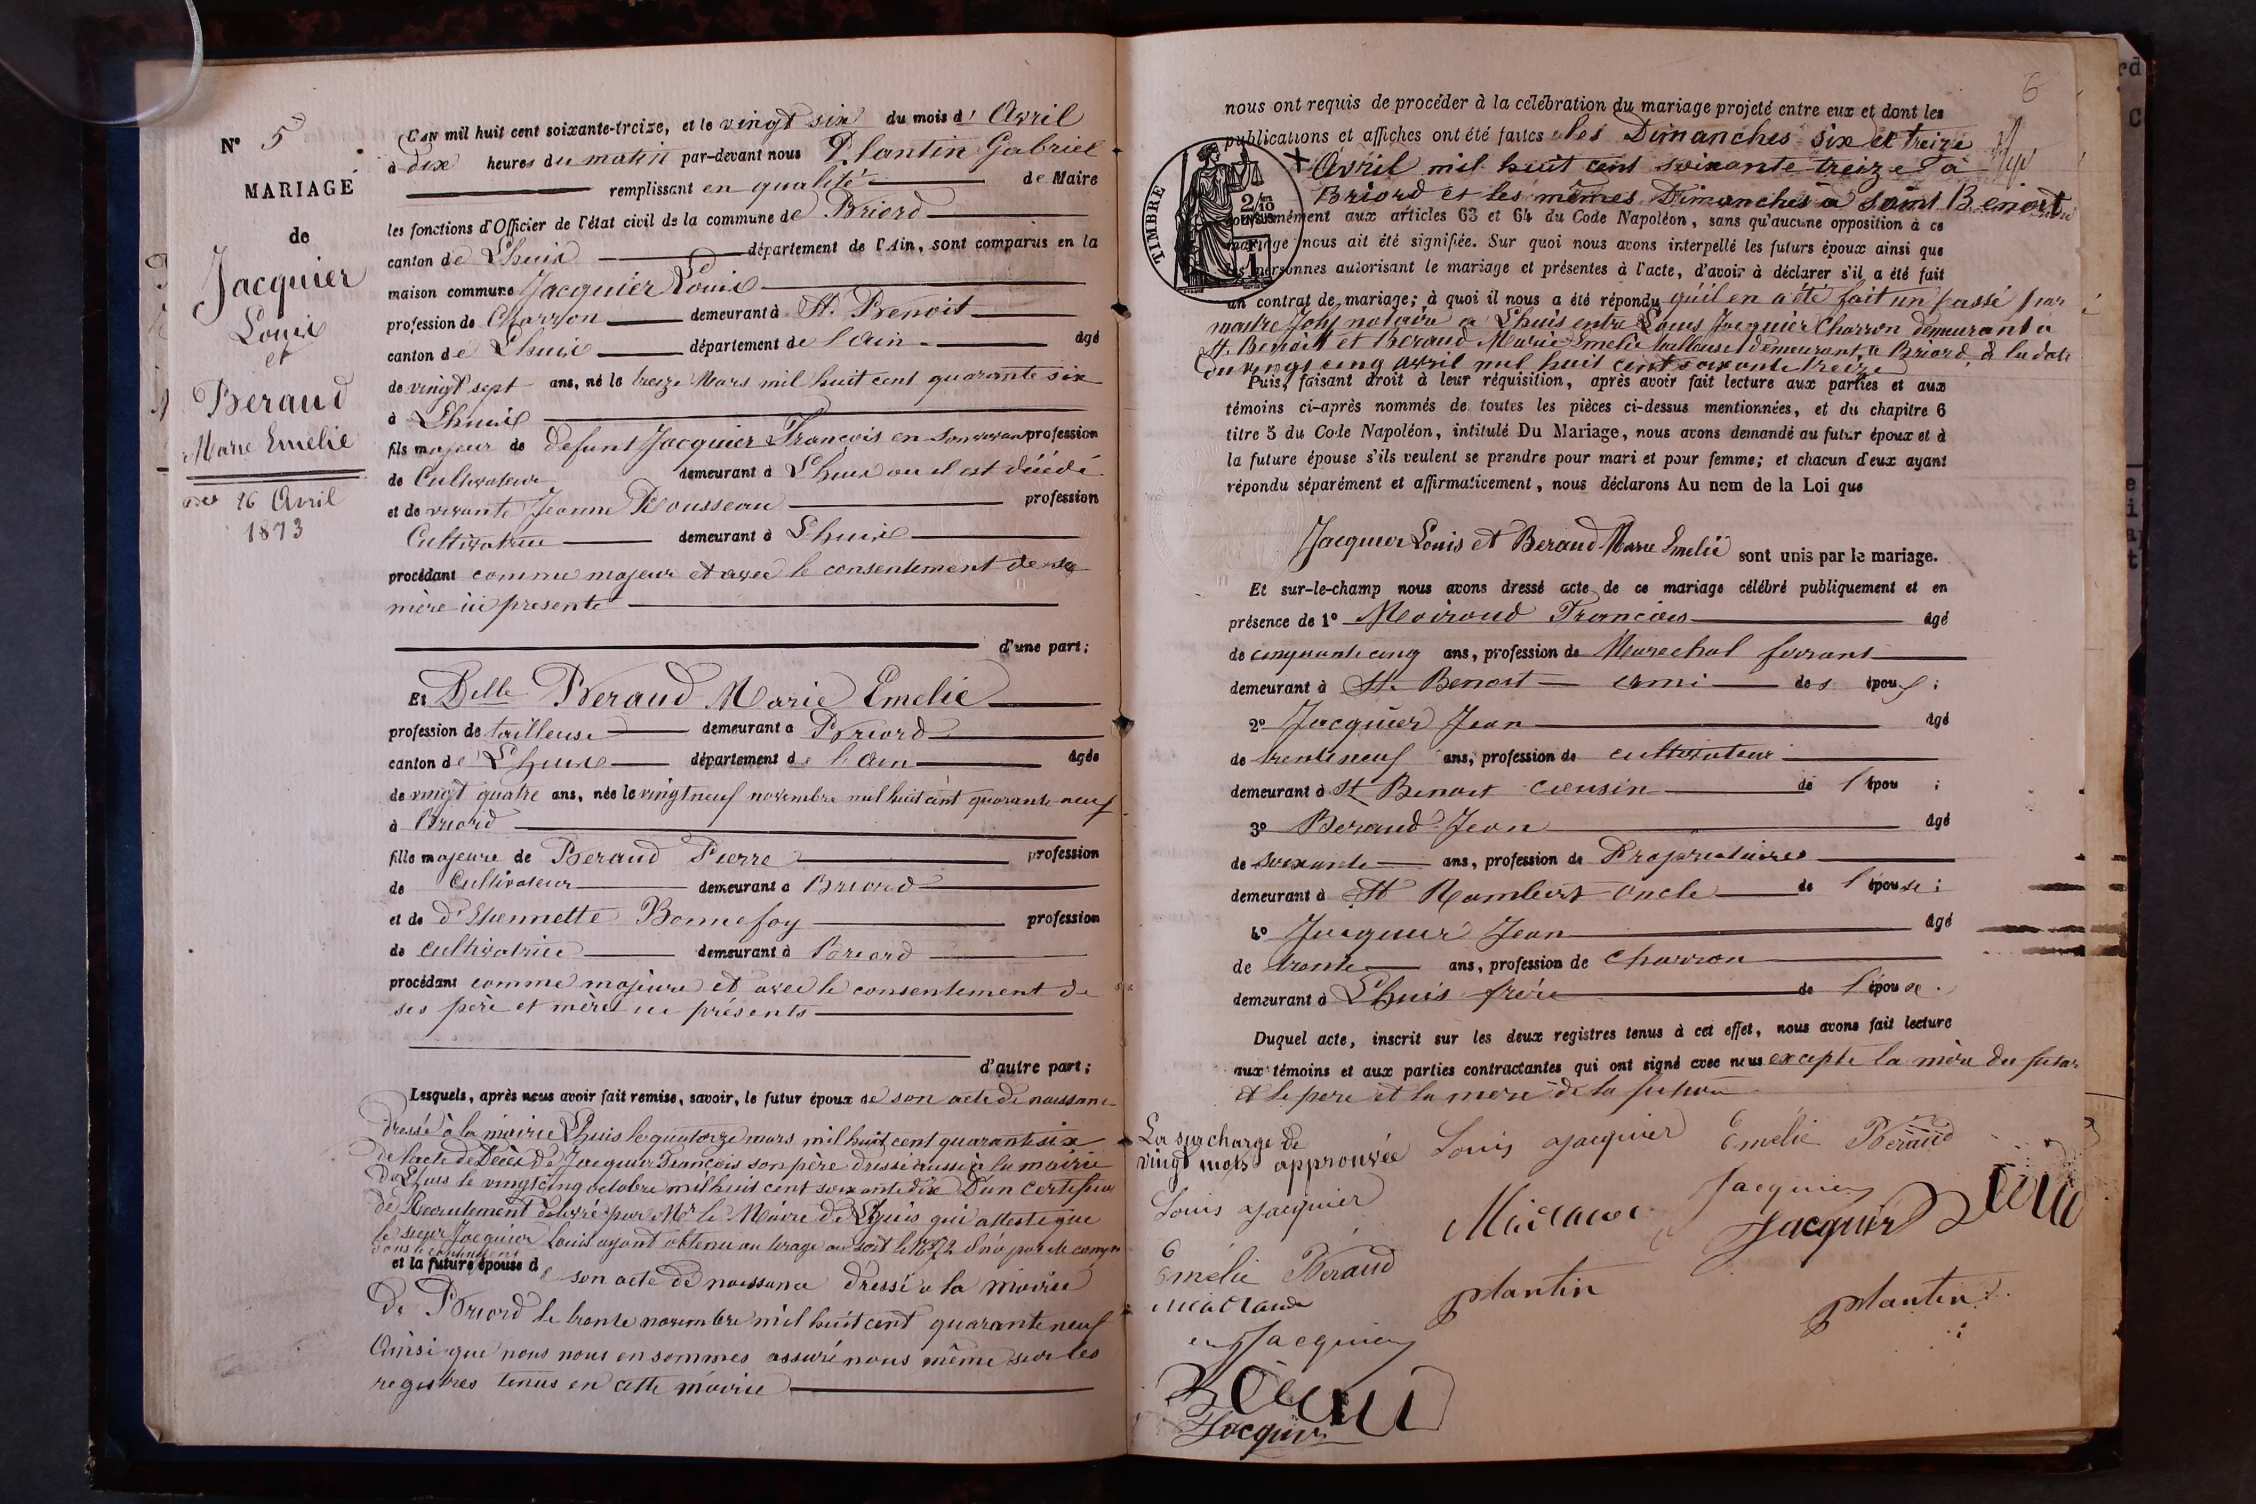 N° 5
MARIAGE
de
Jacquier
Louis
et
Beraud
Marie Emelie
26 Avril
1873
L'AN mil huit cent soixante-treize, et le vingt six du mois d'Avril
à dix heures du matin par-devant nous Plantin Gabriel
remplissant en qualité de Maire
les fonctions d'Officier de l'état civil de la commune de Briord
canton de Lhuis département de l'Ain, sont comparus en la
maison commune Jacquier Louis
profession de Charron demeurant à St. Benoit
canton de Lhuis département de l'Ain âgé
de vingt sept ans, né le treize Mars mil huit cent quarante six
à Lhuis
fils majeur de defunt Jacquier Francois en son vivant profession
de Cultivateur demeurant à Lhuis ou il est décédé
et de vivante Jeanne Rousseau profession
Cultivatrice demeurant à Lhuis
procédant comme majeur et avec le consentement de sa
mère ici presente
d'une part;
Et Delle Beraud Marie Emelie
profession de tailleuse demeurant à Briord
canton de Lhuis département de l'Ain âgée
de vingt quatre ans, née le vingt neuf novembre mil huit cent quarante neuf
à Briord
fille majeure de Beraud Pierre profession
de Cultivateur demeurant à Briord
et de d'Ehennette Bonnefoy profession
de cultivatrice demeurant à Briord
procédant comme majeure et avec le consentement de
ses père et mère ici présents
d'autre part;
Lesquels, après nous avoir fait remise, savoir, le futur époux de son acte de naissance
dressé à la mairie Lhuis le quatorze mars mil huit cent quarante six
de l'acte de Décès de Jacquier François son père dressé aussi à la mairie
de Lhuis le vingt cinq octobre mil huit cent soixante dix D'un certificat
de Recrutement délivré par Mr le Maire de Lhuis qui atteste que
le sieur Jacquier Louis ayant obtenu au tirage au sort le N° 72 n'a pas été compris
dans le contingent
et la future épouse de son acte de naissance dressé a la Mairie
de Briord le trente novembre mil huit cent quarante neuf
Ainsi que nous nous en sommes assuré nous même sur les
registres tenus en cette mairie
6
nous ont requis de procéder à la célébration du mariage projeté entre eux et dont les
publications et affiches ont été faites les Dimanches six et treize
Avril mil huit cent soixante treize à
Briord et les mêmes Dimanches à Saint Benoit
TIMBRE
2/10
EN SUS
conformément aux articles 63 et 64 du Code Napoléon, sans qu'aucune opposition à ce
mariage nous ait été signifiée. Sur quoi nous avons interpellé les futurs époux ainsi que
les personnes autorisant le mariage et présentes à l'acte, d'avoir à déclarer s'il a été fait
un contrat de mariage; à quoi il nous a été répondu qu'il en a été fait un passé par
maitre notaire a Lhuis entre Louis Jacquier Charron demeurant a
St. Benoit et Beraud Marie Emelie tailleuse demeurant a Briord à la date
du vingt cinq avril mil huit cent soixante treize
Puis, faisant droit à leur réquisition, après avoir fait lecture aux parties et aux
témoins ci-après nommés de toutes les pièces ci-dessus mentionnées, et du chapitre 6
titre 5 du Code Napoléon, intitulé Du Mariage, nous avons demandé au futur époux et à
la future épouse s'ils veulent se prendre pour mari et pour femme; et chacun d'eux ayant
répondu séparément et affirmativement, nous déclarons Au nom de la Loi que
Jacquier Louis et Beraud Marie Emelie sont unis par le mariage.
Et sur-le-champ nous avons dressé acte de ce mariage célébré publiquement et en
présence de 1° Moiroud Francois âgé
de cinquante cinq ans, profession de Marechal ferrant
demeurant à St. Benoit ami des époux;
2° Jacquier Jean âgé
de trente neuf ans, profession de cultivateur
demeurant à St Benoit cousin de l'épou;
3° Beraud Jean âgé
de soixante ans, profession de Propriétaire
demeurant à St Rambert oncle de l'épouse;
4° Jacquier Jean âgé
de trente ans, profession de charron
demeurant à Lhuis frère de l'épouse.
Duquel acte, inscrit sur les deux registres tenus à cet effet, nous avons fait lecture
aux témoins et aux parties contractantes qui ont signé avec nous excepte la mère du futur
et le pere et la mere de la future
La surcharge de
vingt mots approuvée
Louis Jacquier Emélie Béraud
Louis Jacquier
Jacquier
Jacquier
Emélie Béraud
Plantin Plantin
Jacquier
Jacquier